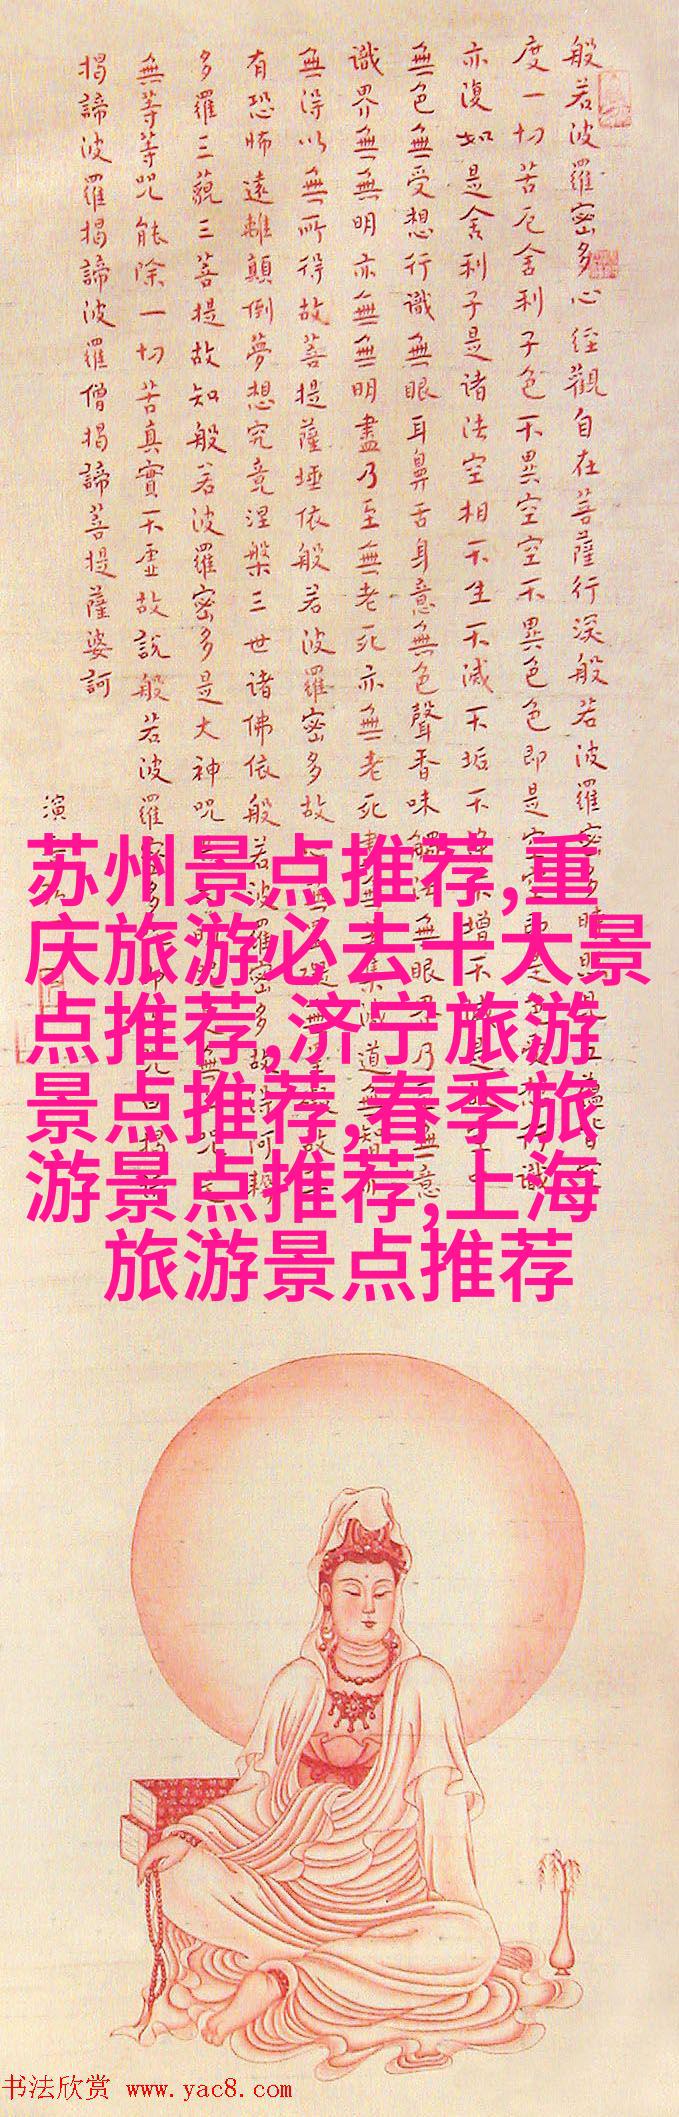 般若波羅密多心經觀自在菩薩行深般若波羅密多時
度一切苦厄舍利子色不異空空不異色色即是空
亦復如是舍利子是诸法空相不生不滅不垢不增不
無色無受想行識無眼耳鼻舌身意無色聲香味觸法無眼界乃無意
識界無無明亦無無明盡乃至無老死亦無老死道無智
無得以無所得故菩提薩埵依般若波羅密多故
有恐怖遠離顛倒夢想究竟涅槃三世諸佛依般若波羅密多故阿耨
多羅三藐三菩提故知般若波羅密多是大神咒
無等等咒能除一切苦真實不虛故說般若波羅
揭諦波羅揭諦波羅僧揭諦菩提薩婆訶
演
苏州景点推荐,重
庆旅游必去十大景
点推荐,济宁旅游
景点推荐,春季旅
游景点推荐,上海
旅游景点推荐
书法欣赏 www.yac8.com